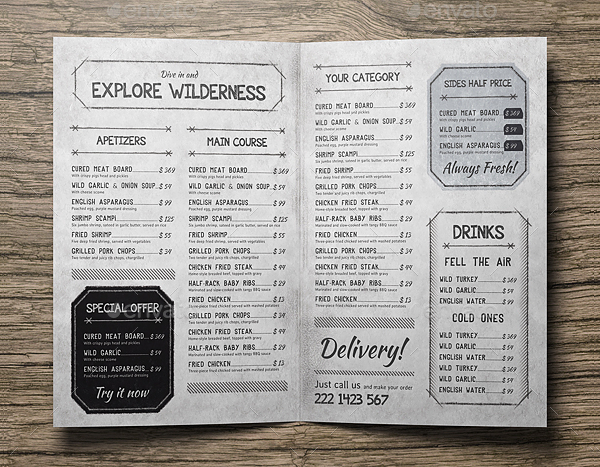 Dive in and
EXPLORE WILDERNESS
APETIZERS
CURED MEAT BOARD....$369
With crispy pigs head and pickles
WILD GARLIC & ONION SOUP..$59
With cheese scone
ENGLISH ASPARAGUS....$99
Poached egg, purple mustard dressing
SHRIMP SCAMPI....$125
Six jumbo shrimp, sauted in garlic butter, served on rice
FRIED SHRIMP....$55
Five deep fried shrimp, served with vegetables
GRILLED PORK CHOPS....$34
Two tender and juicy rib chops, chargrilled
SPECIAL OFFER
CURED MEAT BOARD...$369
With crispy pigs head and pickles
WILD GARLIC....$59
With cheese scone
ENGLISH ASPARAGUS...$99
Poached egg, purple mustard dressing
Try it now
MAIN COURSE
CURED MEAT BOARD....$369
With crispy pigs head and pickles
WILD GARLIC & ONION SOUP..$59
With cheese scone
ENGLISH ASPARAGUS....$99
Poached egg, purple mustard dressing
SHRIMP SCAMPI....$125
Six jumbo shrimp, sauted in garlic butter, served on rice
FRIED SHRIMP....$55
Five deep fried shrimp, served with vegetables
GRILLED PORK CHOPS....$34
Two tender and juicy rib chops, chargrilled
CHICKEN FRIED STEAK....$44
Home-style breaded beef, topped with gravy
HALF-RACK BABY RIBS....$29
Marinated and slow-cooked with tangy BBQ sauce
FRIED CHICKEN....$13
Three-piece fried chicken served with mashed potatoes
GRILLED PORK CHOPS....$34
Two tender and juicy rib chops, chargrilled
CHICKEN FRIED STEAK....$44
Home-style breaded beef, topped with gravy
HALF-RACK BABY RIBS....$29
Marinated and slow-cooked with tangy BBQ sauce
FRIED CHICKEN....$13
Three-piece fried chicken served with mashed potatoes
YOUR CATEGORY
CURED MEAT BOARD....$369
With crispy pigs head and pickles
WILD GARLIC & ONION SOUP..$59
With cheese scone
ENGLISH ASPARAGUS....$99
Poached egg, purple mustard dressing
SHRIMP SCAMPI....$125
Six jumbo shrimp, sauted in garlic butter, served on rice
FRIED SHRIMP....$55
Five deep fried shrimp, served with vegetables
GRILLED PORK CHOPS....$34
Two tender and juicy rib chops, chargrilled
CHICKEN FRIED STEAK....$44
Home-style breaded beef, topped with gravy
HALF-RACK BABY RIBS....$29
Marinated and slow-cooked with tangy BBQ sauce
FRIED CHICKEN....$13
Three-piece fried chicken served with mashed potatoes
GRILLED PORK CHOPS....$34
Two tender and juicy rib chops, chargrilled
CHICKEN FRIED STEAK....$44
Home-style breaded beef, topped with gravy
HALF-RACK BABY RIBS....$29
Marinated and slow-cooked with tangy BBQ sauce
FRIED CHICKEN....$13
Three-piece fried chicken served with mashed potatoes
Delivery!
Just call us and make your order
222 1423 567
SIDES HALF PRICE
CURED MEAT BOARD...$369
With crispy pigs head and pickles
WILD GARLIC....$59
With cheese scone
ENGLISH ASPARAGUS..$99
Poached egg, purple mustard dressing
Always Fresh!
DRINKS
FELL THE AIR
WILD TURKEY....$369
WILD GARLIC....$59
ENGLISH WATER....$99
COLD ONES
WILD TURKEY....$369
WILD GARLIC....$59
ENGLISH WATER....$99
WILD TURKEY....$369
WILD GARLIC....$59
ENGLISH WATER....$99
envato